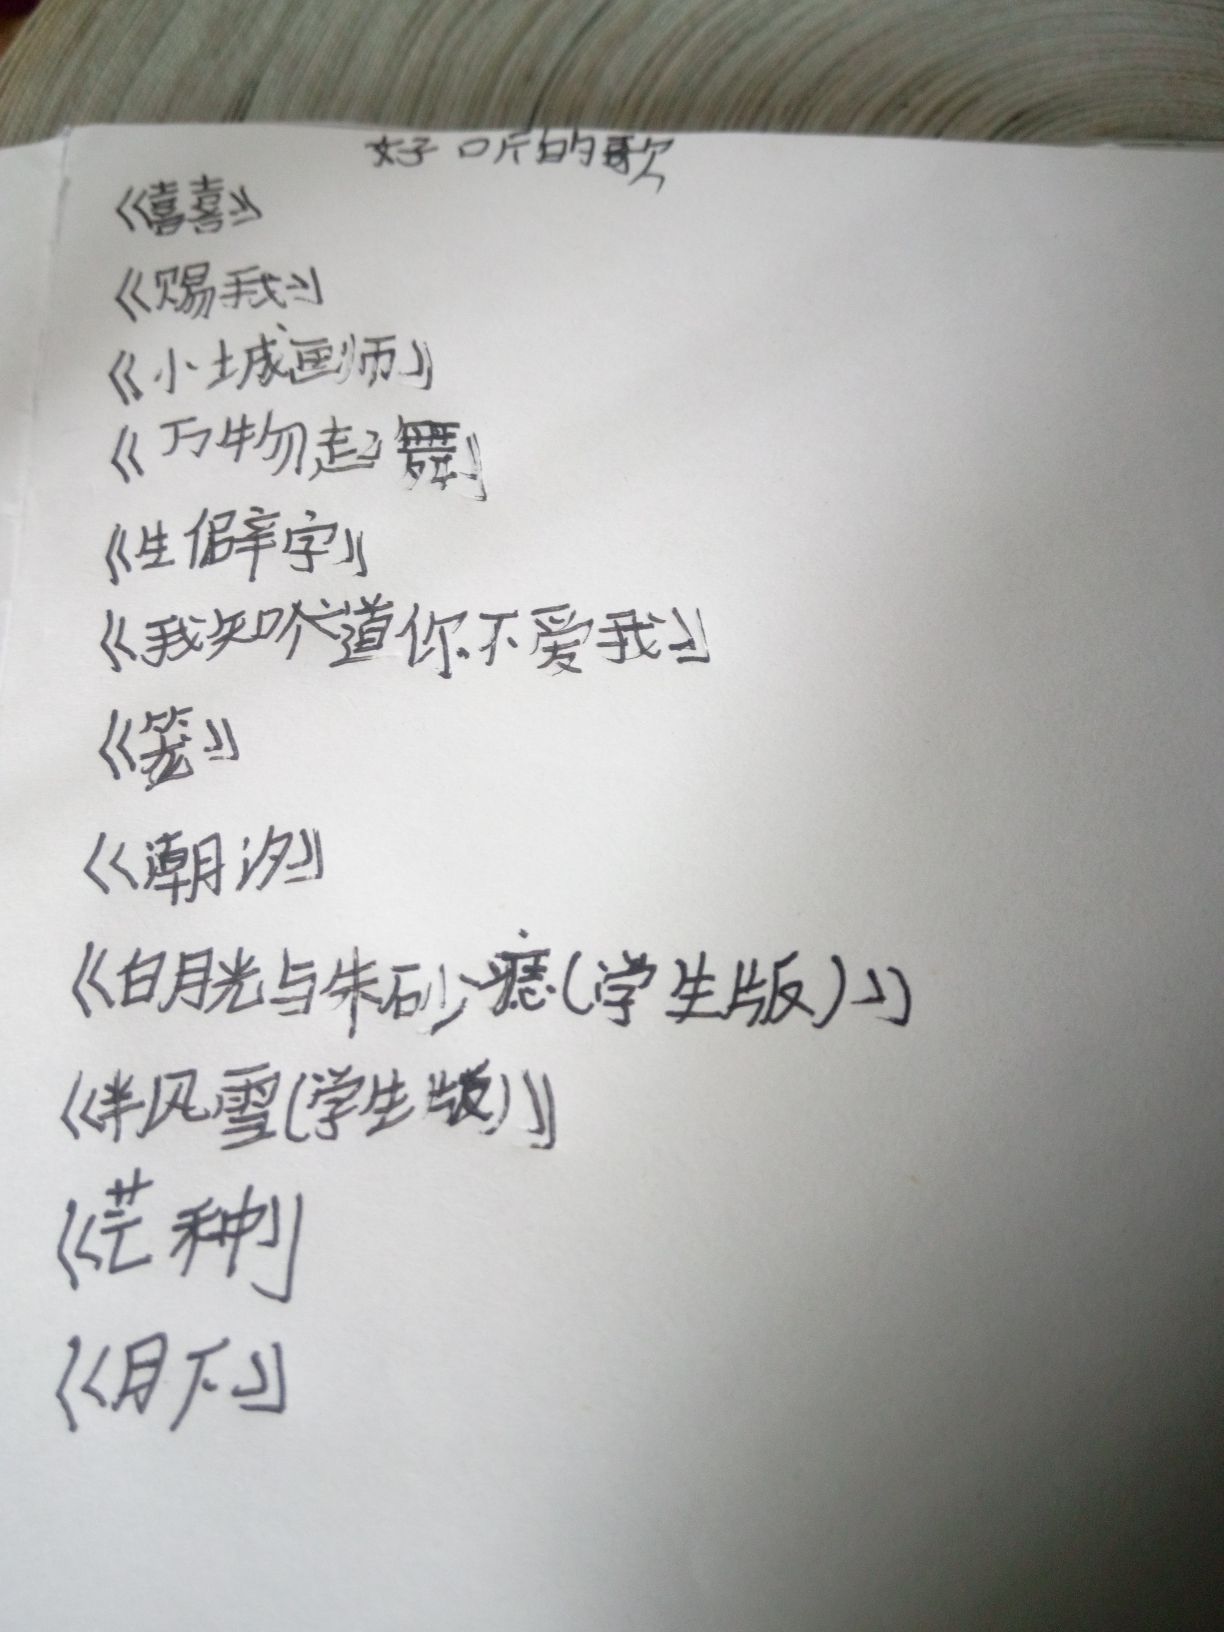 好听的歌
《囍》
《赐我》
《小城画师》
《万物起舞》
《生僻字》
《我知道你不爱我》
《笼》
《潮汐》
《白月光与朱砂痣(学生版)》
《半风雪(学生版)》
《芒种》
《月下》